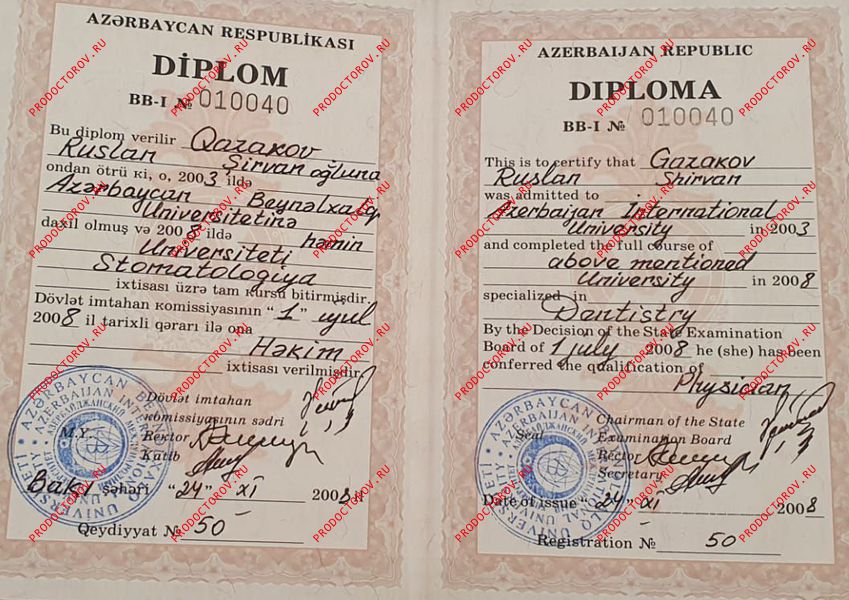 AZƏRBAYCAN RESPUBLİKASI
DİPLOM
BB-I № 010040
Bu diplom verilir Qazakov
Ruslan Şirvan oğluna
ondan ötrü ki, o, 2003 ildə
Azərbaycan Beynəlxalq
Universitetinə
daxil olmuş və 2008 ildə həmin
Universiteti
Stomatologiya
ixtisası üzrə tam kursu bitirmişdir.
Dövlət imtahan komissiyasının "1" iyul
2008 il tarixli qərarı ilə ona
Həkim
ixtisası verilmişdir
Dövlət imtahan
komissiyasının sədri
M.Y. Rektor
Katib
Bakı şəhəri "24" XI 2008 il
Qeydiyyat № 50
AZERBAIJAN REPUBLIC
DIPLOMA
BB-I № 010040
This is to certify that Gazakov
Ruslan Shirvan
was admitted to
Azerbaijan International
University in 2003
and completed the full course of
above mentioned
University in 2008
specialized in
Dentistry
By the Decision of the State Examination
Board of 1 july 2008 he (she) has been
conferred the qualification of
Physician
Chairman of the State
Seal Examination Board
Rector
Secretary
Date of issue "24" XI 2008
Registration № 50
PRODOCTOROV.RU